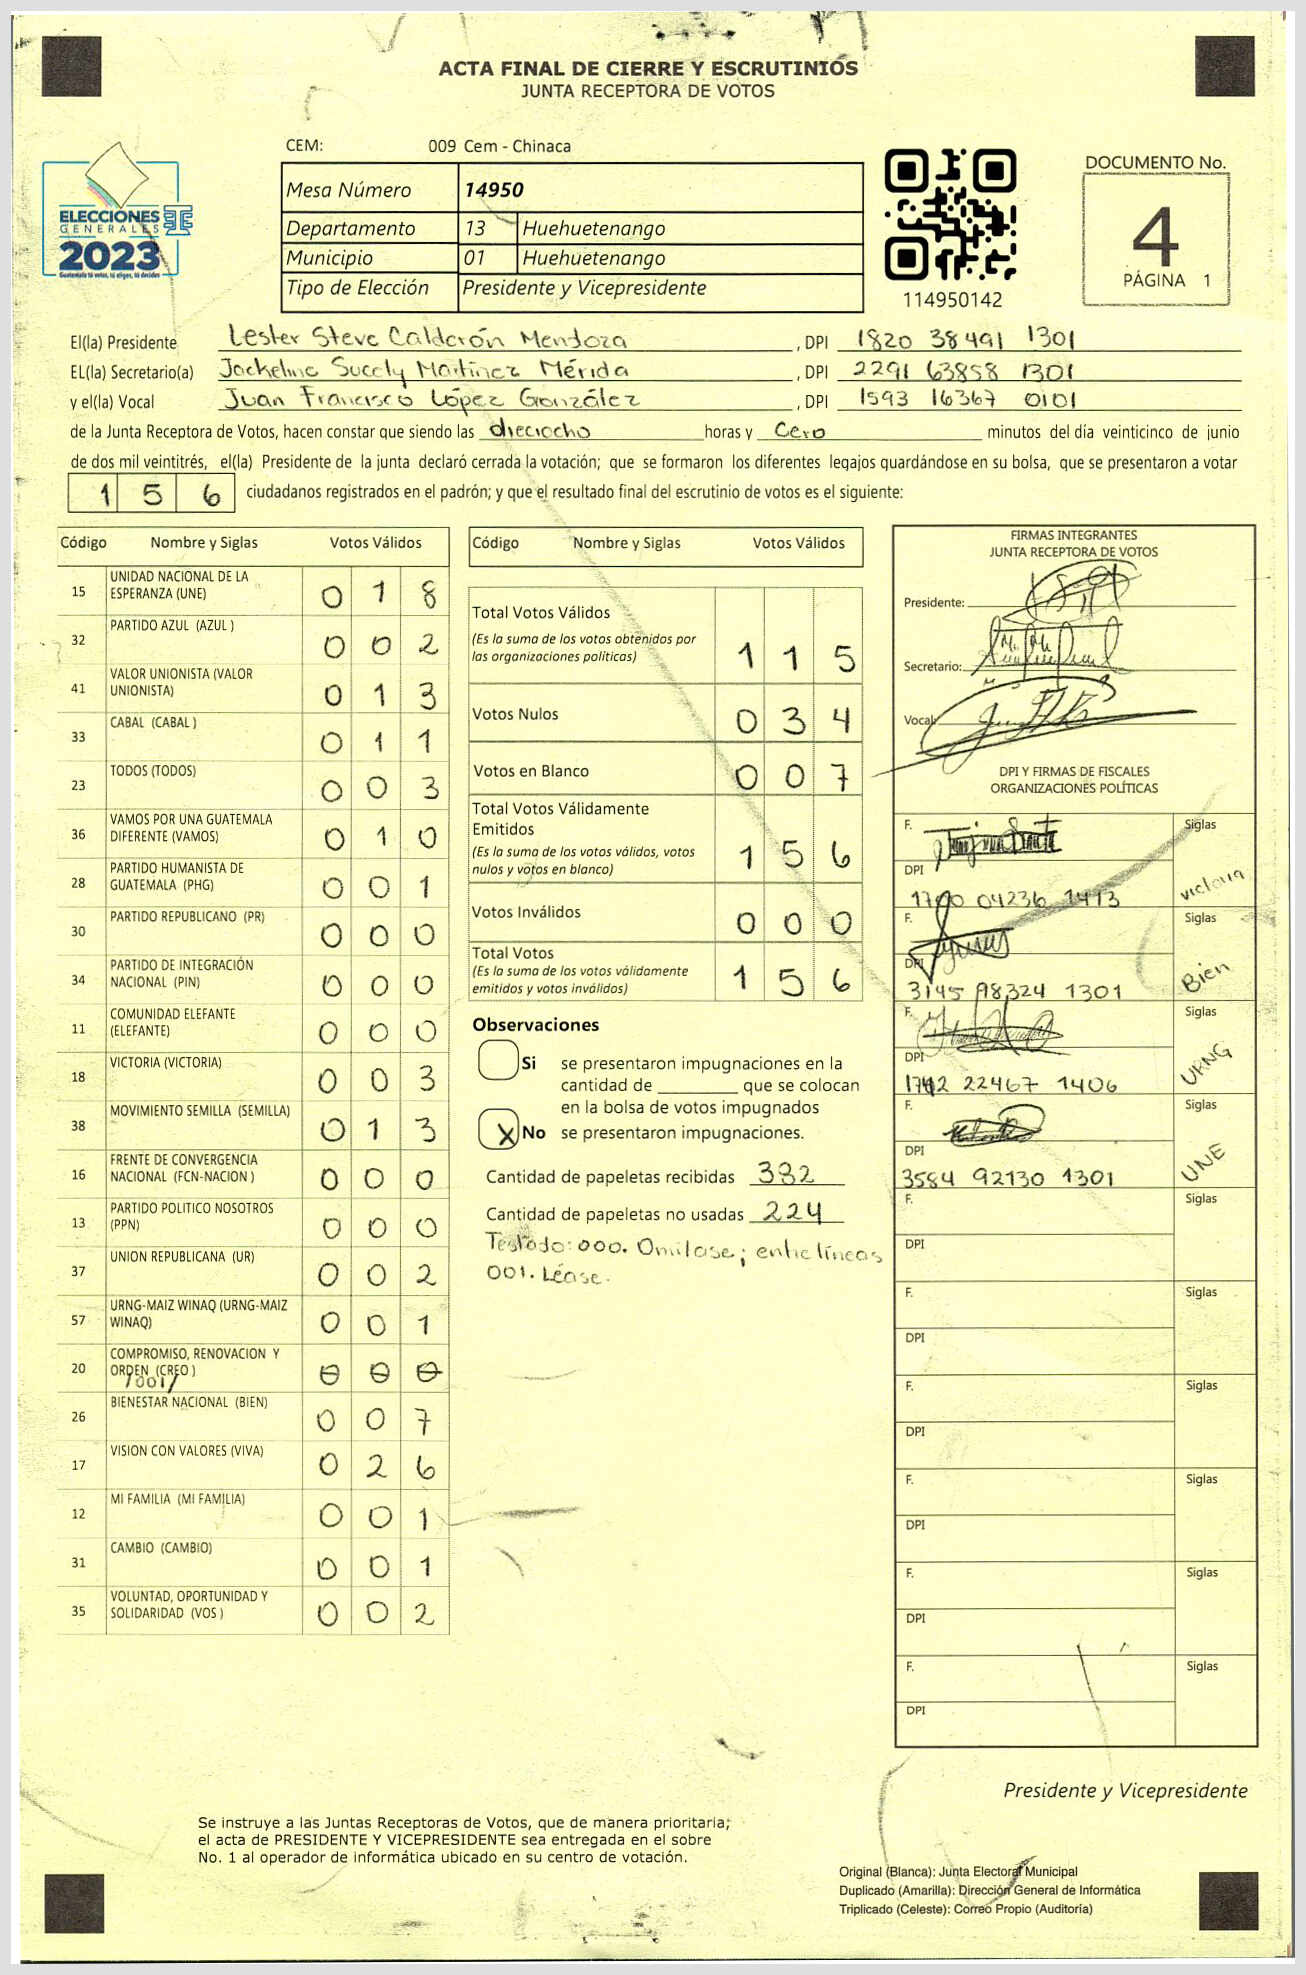 ACTA FINAL DE CIERRE Y ESCRUTINIOS
JUNTA RECEPTORA DE VOTOS
CEM: 009 Cem - Chinaca
ELECCIONES
GENERALES
2023
Guatemala tú votas, tú eliges, tú decides
Mesa Número 14950
Departamento 13 Huehuetenango
Municipio 01 Huehuetenango
Tipo de Elección Presidente y Vicepresidente
114950142
DOCUMENTO No.
4
PÁGINA 1
El(la) Presidente Lester Steve Calderón Mendoza , DPI 1820 38491 1301
EL(la) Secretario(a) Jackeline Sucely Martínez Mérida , DPI 2291 63858 1301
y el(la) Vocal Juan Francisco López González , DPI 1593 16367 0101
de la Junta Receptora de Votos, hacen constar que siendo las dieciocho horas y Cero minutos del día veinticinco de junio
de dos mil veintitrés, el(la) Presidente de la junta declaró cerrada la votación; que se formaron los diferentes legajos quardándose en su bolsa, que se presentaron a votar
1 5 6 ciudadanos registrados en el padrón; y que el resultado final del escrutinio de votos es el siguiente:
Código Nombre y Siglas Votos Válidos
15 UNIDAD NACIONAL DE LA ESPERANZA (UNE) 0 1 8
32 PARTIDO AZUL (AZUL ) 0 0 2
41 VALOR UNIONISTA (VALOR UNIONISTA) 0 1 3
33 CABAL (CABAL ) 0 1 1
23 TODOS (TODOS) 0 0 3
36 VAMOS POR UNA GUATEMALA DIFERENTE (VAMOS) 0 1 0
28 PARTIDO HUMANISTA DE GUATEMALA (PHG) 0 0 1
30 PARTIDO REPUBLICANO (PR) 0 0 0
34 PARTIDO DE INTEGRACIÓN NACIONAL (PIN) 0 0 0
11 COMUNIDAD ELEFANTE (ELEFANTE) 0 0 0
18 VICTORIA (VICTORIA) 0 0 3
38 MOVIMIENTO SEMILLA (SEMILLA) 0 1 3
16 FRENTE DE CONVERGENCIA NACIONAL (FCN-NACION ) 0 0 0
13 PARTIDO POLITICO NOSOTROS (PPN) 0 0 0
37 UNION REPUBLICANA (UR) 0 0 2
57 URNG-MAIZ WINAQ (URNG-MAIZ WINAQ) 0 0 1
20 COMPROMISO, RENOVACION Y ORDEN (CREO ) 0 0 0
/001/
26 BIENESTAR NACIONAL (BIEN) 0 0 7
17 VISION CON VALORES (VIVA) 0 2 6
12 MI FAMILIA (MI FAMILIA) 0 0 1
31 CAMBIO (CAMBIO) 0 0 1
35 VOLUNTAD, OPORTUNIDAD Y SOLIDARIDAD (VOS ) 0 0 2
Código Nombre y Siglas Votos Válidos
Total Votos Válidos
(Es la suma de los votos obtenidos por
las organizaciones politicas) 1 1 5
Votos Nulos 0 3 4
Votos en Blanco 0 0 7
Total Votos Válidamente
Emitidos
(Es la suma de los votos válidos, votos
nulos y votos en blanco) 1 5 6
Votos Inválidos 0 0 0
Total Votos
(Es la suma de los votos válidamente
emitidos y votos inválidos) 1 5 6
Observaciones
Si se presentaron impugnaciones en la
cantidad de ________ que se colocan
en la bolsa de votos impugnados
X No se presentaron impugnaciones.
Cantidad de papeletas recibidas 382
Cantidad de papeletas no usadas 224
Testado: 000. Omitase; entre líneas
001. Léase.
FIRMAS INTEGRANTES
JUNTA RECEPTORA DE VOTOS
Presidente:
Secretario:
Vocal:
DPI Y FIRMAS DE FISCALES
ORGANIZACIONES POLÍTICAS
F. Siglas
DPI victoria
1700 04236 1413
F. Siglas
DPI Bien
3145 98324 1301
F. Siglas
DPI URNG
1742 22467 1406
F. Siglas
DPI UNE
3584 92130 1301
F. Siglas
DPI
F. Siglas
DPI
F. Siglas
DPI
F. Siglas
DPI
F. Siglas
DPI
F. Siglas
DPI
Presidente y Vicepresidente
Se instruye a las Juntas Receptoras de Votos, que de manera prioritaria;
el acta de PRESIDENTE Y VICEPRESIDENTE sea entregada en el sobre
No. 1 al operador de informática ubicado en su centro de votación.
Original (Blanca): Junta Electoral Municipal
Duplicado (Amarilla): Dirección General de Informática
Triplicado (Celeste): Correo Propio (Auditoría)